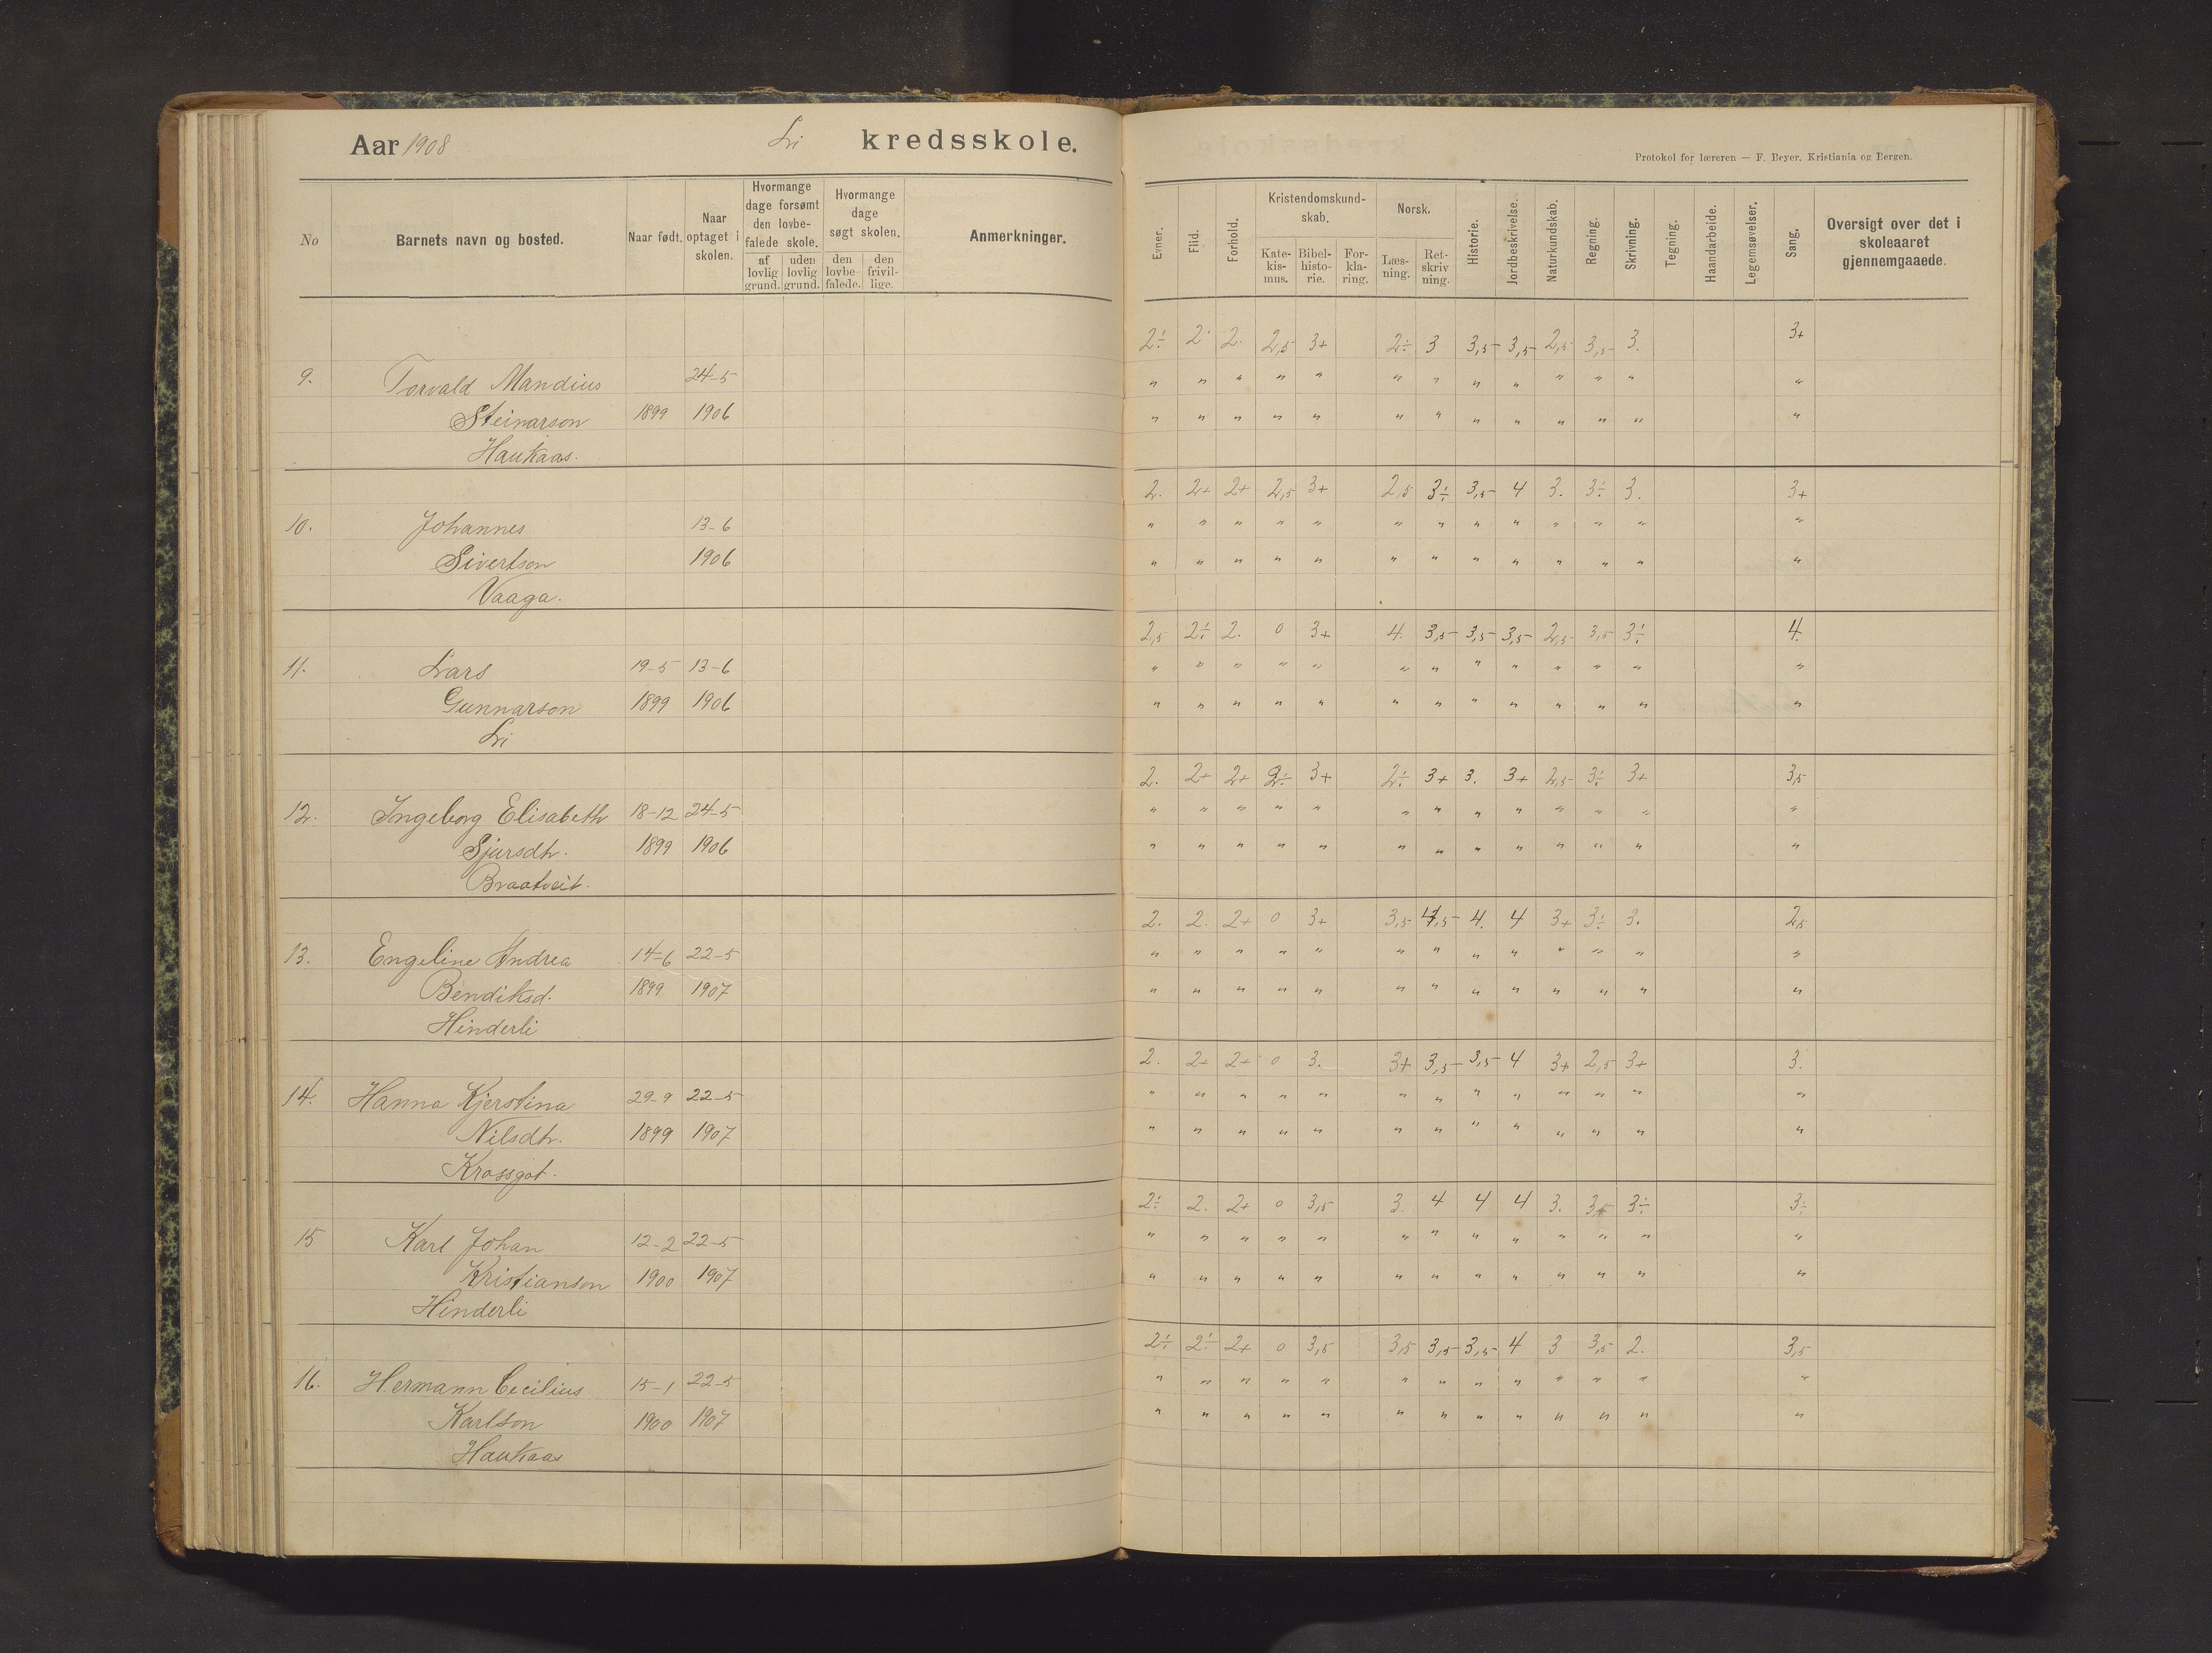 Aar 1908 Li kredsskole.
Protokol for læreren — F. Beyer. Kristiania og Bergen.
No Barnets navn og bosted. Naar født. Naar optaget i skolen. Hvormange dage forsømt den lovbefalede skole. af lovlig grund. uden lovlig grund. Hvormange dage søgt skolen. den lovbefalede. den frivillige. Anmerkninger.
Evner. Flid. Forhold. Kristendomskundskab. Katekismus. Bibelhistorie. Forklaring. Norsk. Læsning. Retskrivning. Historie. Jordbeskrivelse. Naturkundskab. Regning. Skrivning. Tegning. Haandarbeide. Legemsøvelser. Sang. Oversigt over det i skoleaaret gjennemgaaede.
2÷ 2 2. 2,5 3+ 2÷ 3 3,5 3,5 2,5 3,5 3. 3+
9. Torvald Mandius 24-5 " " " " " " " " " " " " "
Steinarson 1899 1906 " " " " " " " " " " " " "
Haukaas.
2. 2+ 2+ 2,5 3+ 2,5 3÷ 3,5 4 3. 3÷ 3. 3+
10. Johannes 13-6 " " " " " " " " " " " " "
Sivertson 1906 " " " " " " " " " " " " "
Vaaga.
2,5 2÷ 2. 0 3+ 4. 3,5 3,5 3,5 2,5 3,5 3÷ 4.
11. Lars 19-5 13-6 " " " " " " " " " " " " "
Gunnarson 1899 1906 " " " " " " " " " " " " "
Li
2. 2+ 2+ 2÷ 3+ 2÷ 3+ 3. 3+ 2,5 3÷ 3+ 3,5
12. Ingeborg Elisabeth 18-12 24-5 " " " " " " " " " " " " "
Sjursdh. 1899 1906 " " " " " " " " " " " " "
Braatveit.
2. 2. 2+ 0 3+ 3,5 4,5 4. 4 3+ 3÷ 3. 2,5
13. Engeline Andrea 14-6 22-5 " " " " " " " " " " " " "
Bendiksd. 1899 1907 " " " " " " " " " " " " "
Hinderli
2. 2+ 2+ 0 3. 3+ 3,5 3,5 4 3+ 2,5 3+ 3.
14. Hanna Kjerstina 29-9 22-5 " " " " " " " " " " " " "
Nilsdh. 1899 1907 " " " " " " " " " " " " "
Krossgot.
2÷ 2. 2+ 0 3,5 3. 4 4 4 3. 3,5 3÷ 3÷
15 Karl Johan 12-2 22-5 " " " " " " " " " " " " "
Kristianson 1900 1907 " " " " " " " " " " " " "
Hinderli
2÷ 2÷ 2+ 0 3,5 3,5 3,5 3,5 4 3 3,5 2. 3,5
16. Hermann Cecilius 15-1 22-5 " " " " " " " " " " " " "
Karlson 1900 1907 " " " " " " " " " " " " "
Haukaas